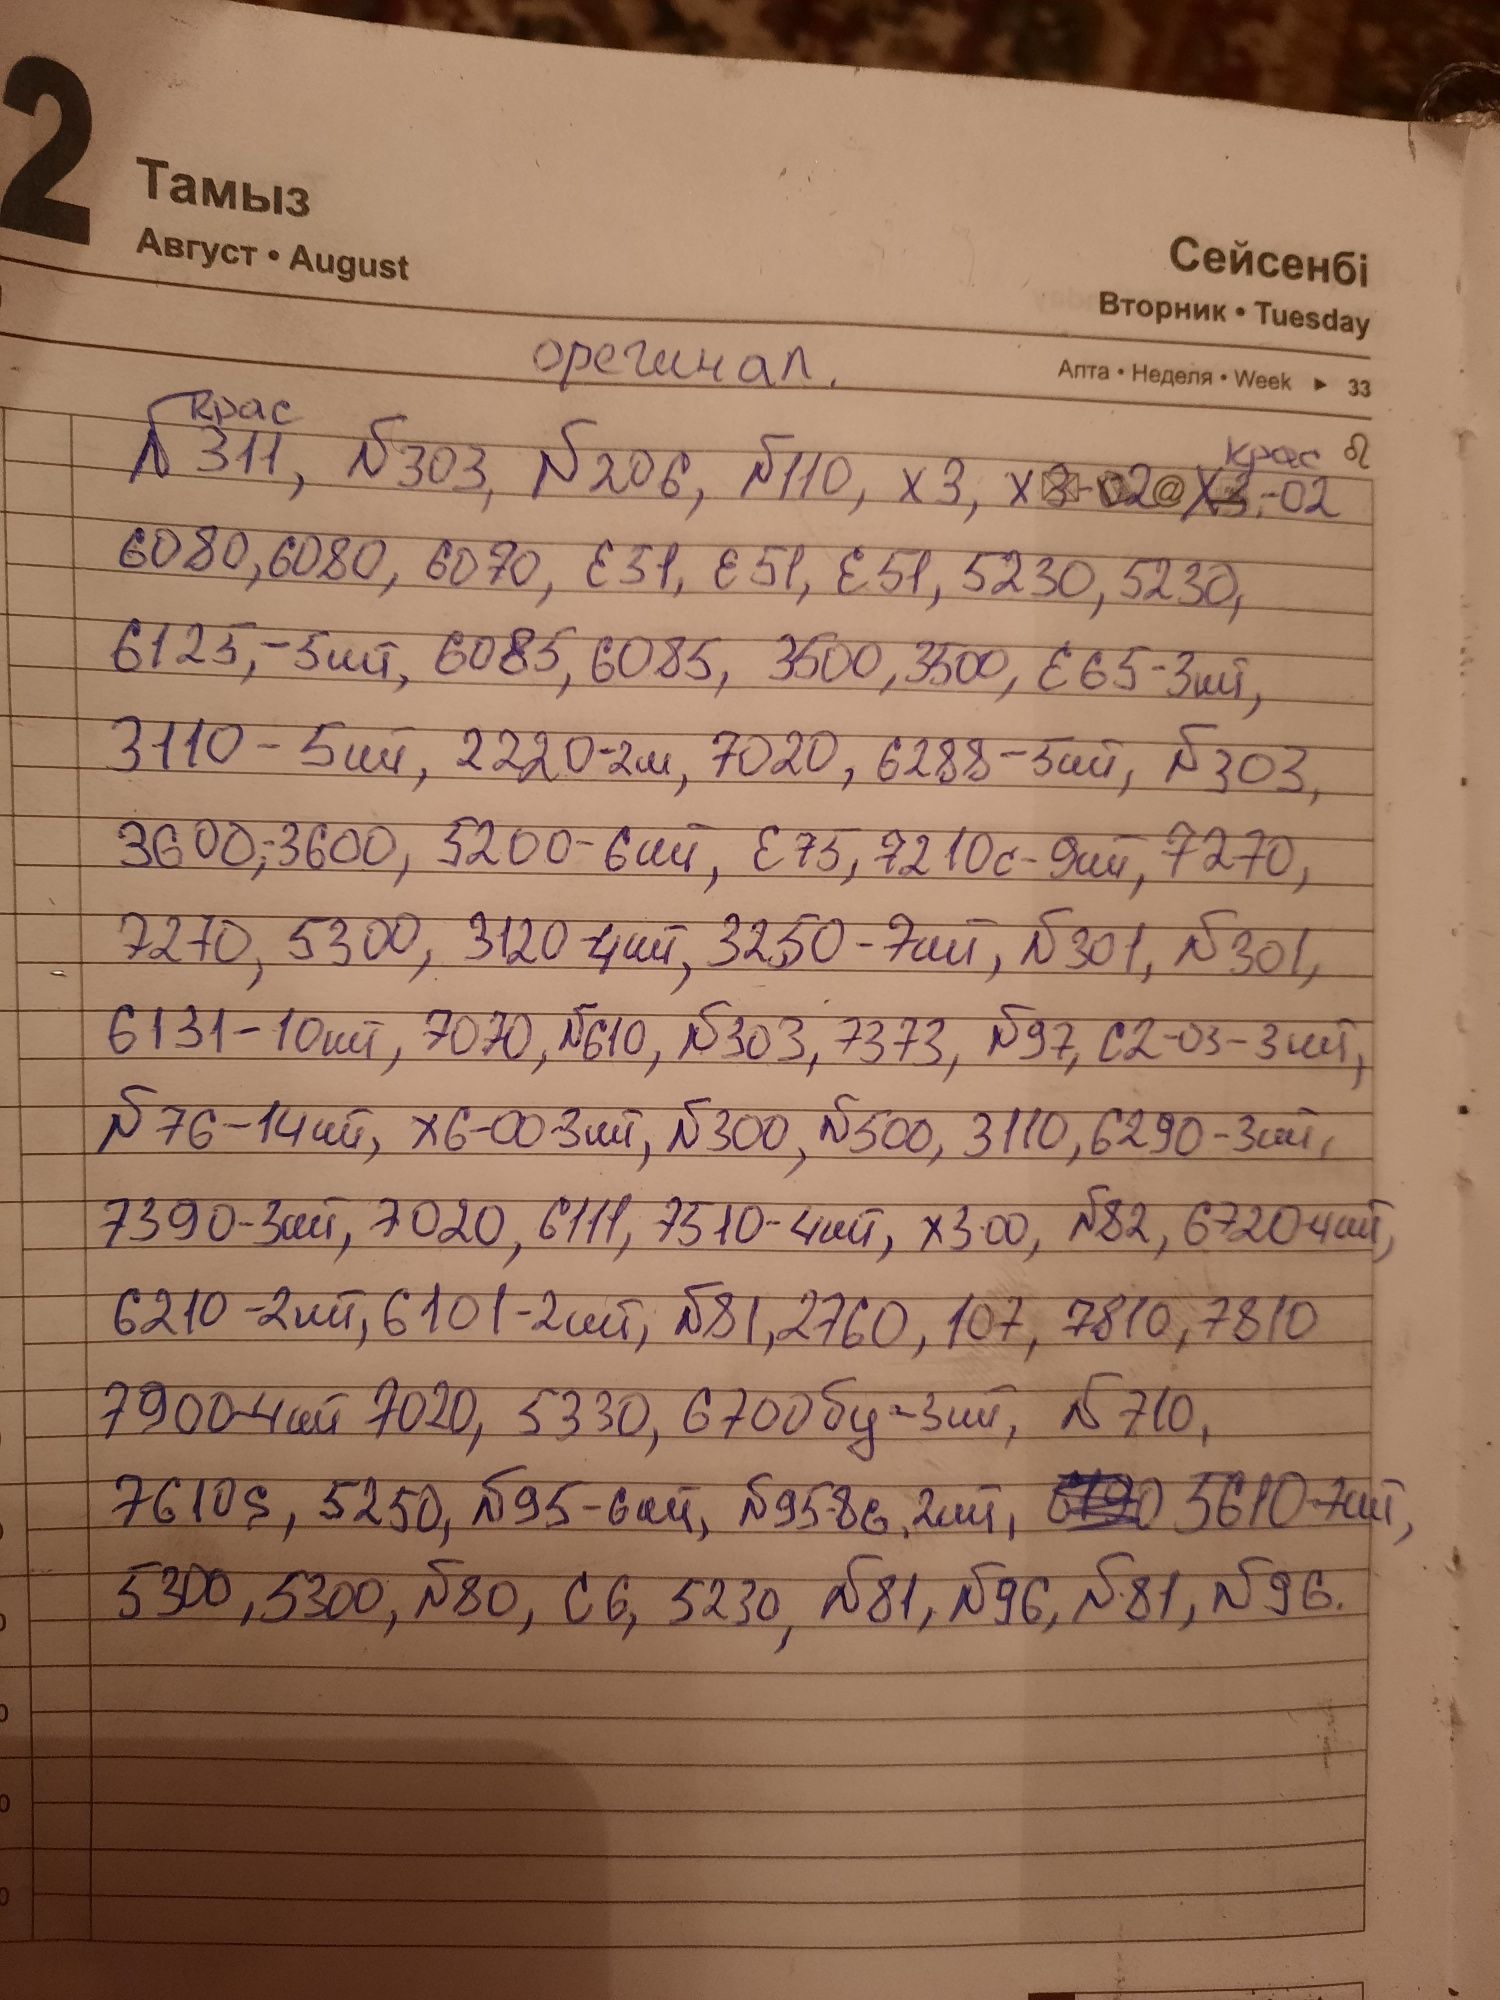 2
Тамыз
Август • August
Сейсенбі
Вторник • Tuesday
Апта • Неделя • Week ► 33
орегинал.
крас
N311, N303, N206, N110, x3, x3-02 x3-02
крас
6080, 6080, 6070, E51, E51, E51, 5230, 5230,
6125,-5шт, 6085, 6085, 3500, 3500, E65-3шт,
3110-5шт, 2220-2ш, 7020, 6288-5шт, N303,
3600,-3600, 5200-6шт, E75, 7210с-9шт, 7270,
7270, 5300, 3120-4шт, 3250-7шт, N301, N301,
6131-10шт, 7070, N610, N303, 7373, N97, C2-03-3шт,
N76-14шт, x6-00-3шт, N300, N500, 3110, 6290-3шт,
7390-3шт, 7020, 6111, 7510-4шт, x3-00, N82, 6720-4шт,
6210-2шт, 6101-2шт, N81, 2760, 107, 7810, 7810
7900-4шт 7020, 5330, 6700бу-3шт, N710,
7610s, 5250, N95-6шт, N95-8G.2шт, 5610-7шт,
5300, 5300, N80, C6, 5230, N81, N96, N81, N96.